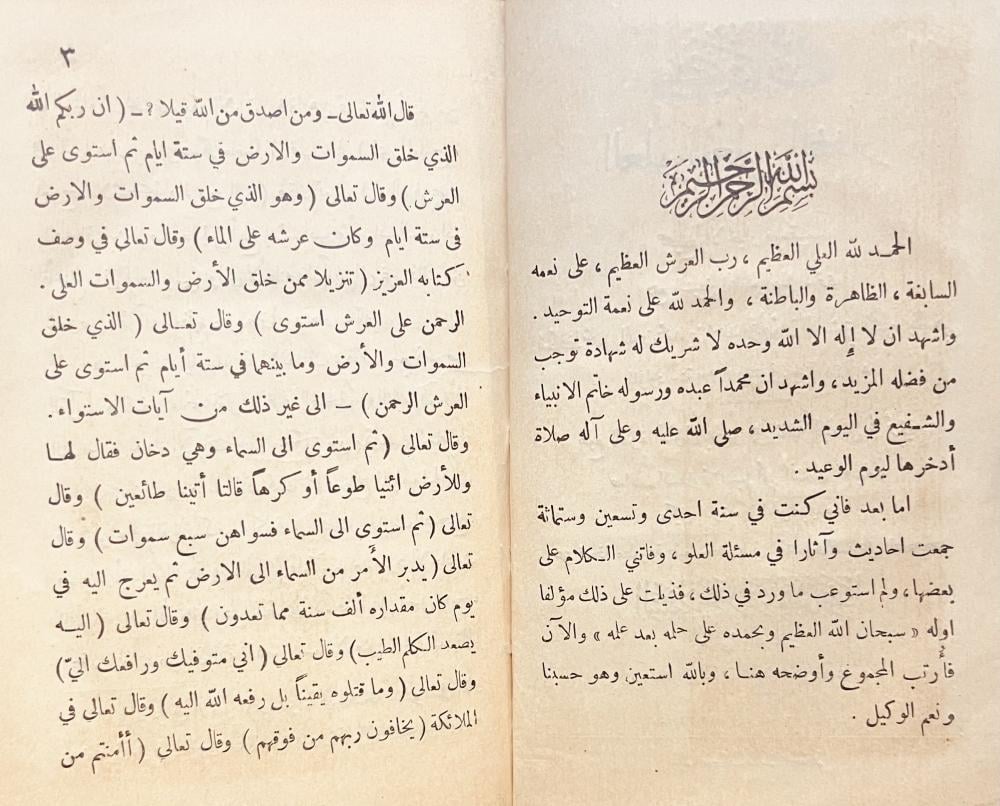 بسم الله الرحمن الرحيم
الحمـد لله العلي العظيم ، رب العرش العظيم ، على نعمه
السابغة ، الظاهرة والباطنة ، والحمد لله على نعمة التوحيد .
واشهد ان لا إله الا الله وحده لا شريك له شهادة توجب
من فضله المزيد، واشهد ان محمداً عبده ورسوله خاتم الانبياء
والشـفيع في اليوم الشديد ، صلى الله عليه وعلى آله صلاة
أدخرها ليوم الوعيد .
اما بعد فاني كنت في سنة احدى وتسعين وستمائة
جمعت احاديث وآثارا في مسئلة العلو ، وفاتني الـكلام على
بعضها، ولم استوعب ما ورد في ذلك ، فذيلت على ذلك مؤلفا
اوله « سبحان الله العظيم وبحمده على حلمه بعد علمه » والآن
فأُرتب المجموع وأوضحه هنـا ، وبالله استعين وهو حسبنا
ونعم الوكيل .
٣
قال الله تعالى ـ ومن اصدق من الله قيلا ? ـ ( ان ربكم الله
الذي خلق السموات والارض في ستة ايام ثم استوى على
العرش ) وقال تعالى ( وهو الذي خلق السموات والارض
في ستة ايام وكان عرشه على الماء ) وقال تعالى في وصف
كتابه العزيز ( تنزيلا ممن خلق الأرض والسموات العلى .
الرحمن على العرش استوى ) وقال تعـالى ( الذي خلق
السموات والأرض وما بينهما في ستة أيام ثم استوى على
العرش الرحمن ) ـ الى غير ذلك من آيات الاستواء .
وقال تعالى ( ثم استوى الى السماء وهي دخان فقال لهـا
وللأرض ائتيا طوعاً أو كرهاً قالتا أتينا طائعين ) وقال
تعالى ( ثم استوى الى السماء فسواهن سبع سموات ) وقال
تعالى ( يدبر الأَمر من السماء الى الارض ثم يعرج اليه في
يوم كان مقداره ألف سنة مما تعدون ) وقال تعالى ( اليـه
يصعد الـكلم الطيب ) وقال تعالى ( اني متوفيك ورافعك اليّ )
وقال تعالى ( وما قتلوه يقيناً بل رفعه الله اليه ) وقال تعالى في
الملائكة ( يخافون ربهم من فوقهم ) وقال تعالى ( أأمنتم من